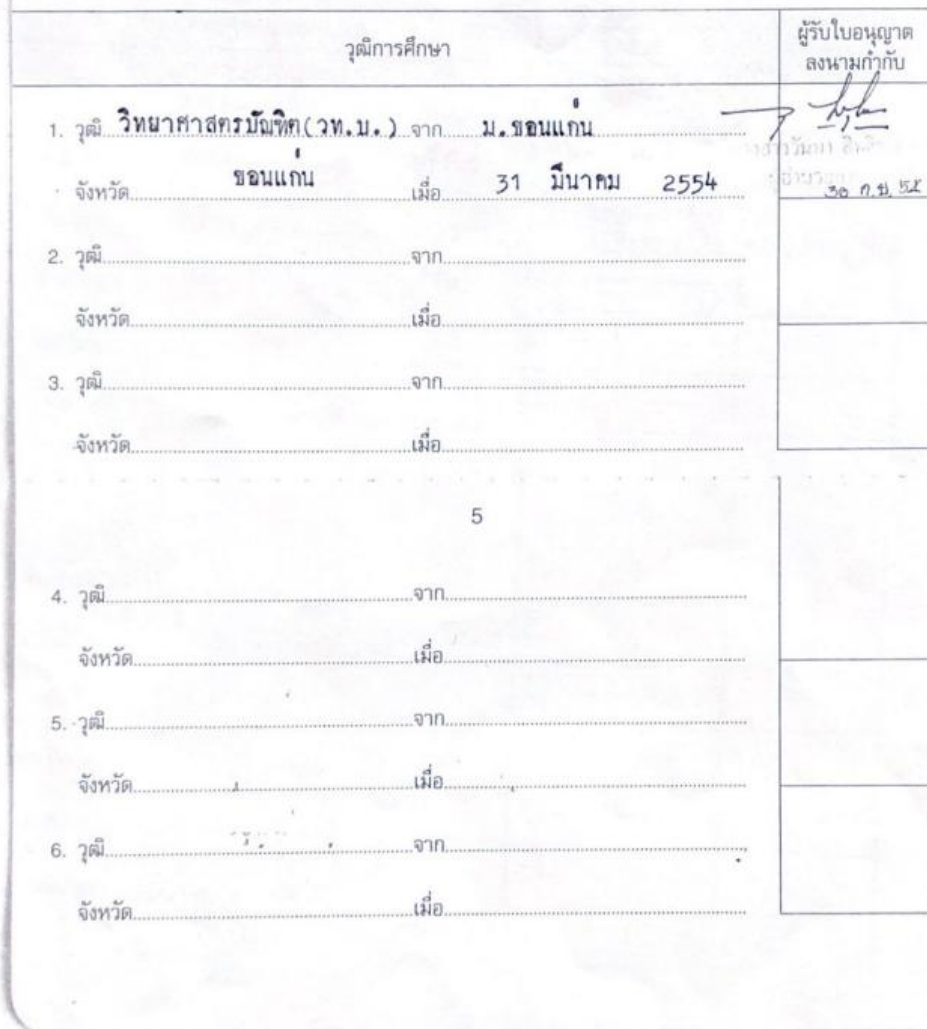 วุฒิการศึกษา
ผู้รับใบอนุญาต
ลงนามกำกับ
1. วุฒิ วิทยาศาสตรบัณฑิต(วท.บ.) จาก ม.ขอนแก่น
จังหวัด ขอนแก่น เมื่อ 31 มีนาคม 2554
30 ก.ย. 54
2. วุฒิ จาก
จังหวัด เมื่อ
3. วุฒิ จาก
จังหวัด เมื่อ
5
4. วุฒิ จาก
จังหวัด เมื่อ
5. วุฒิ จาก
จังหวัด เมื่อ
6. วุฒิ จาก
จังหวัด เมื่อ